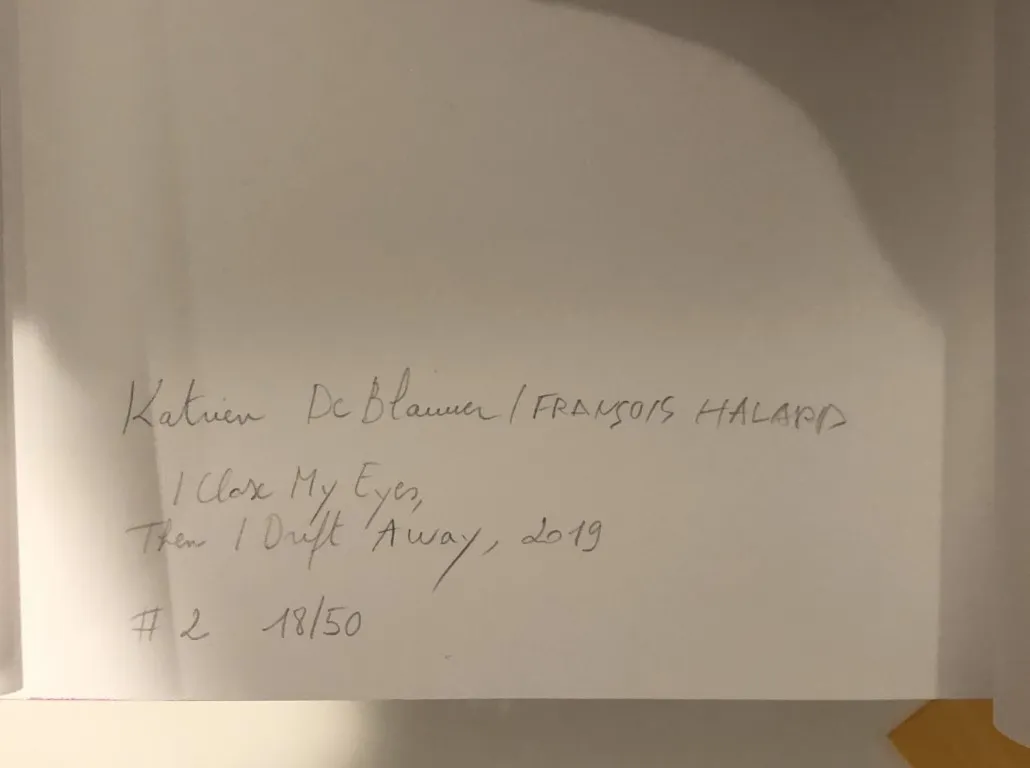 Katrien De Blauwer / FRANÇOIS HALARD
I Close My Eyes,
Then I Drift Away, 2019
# 2 18/50